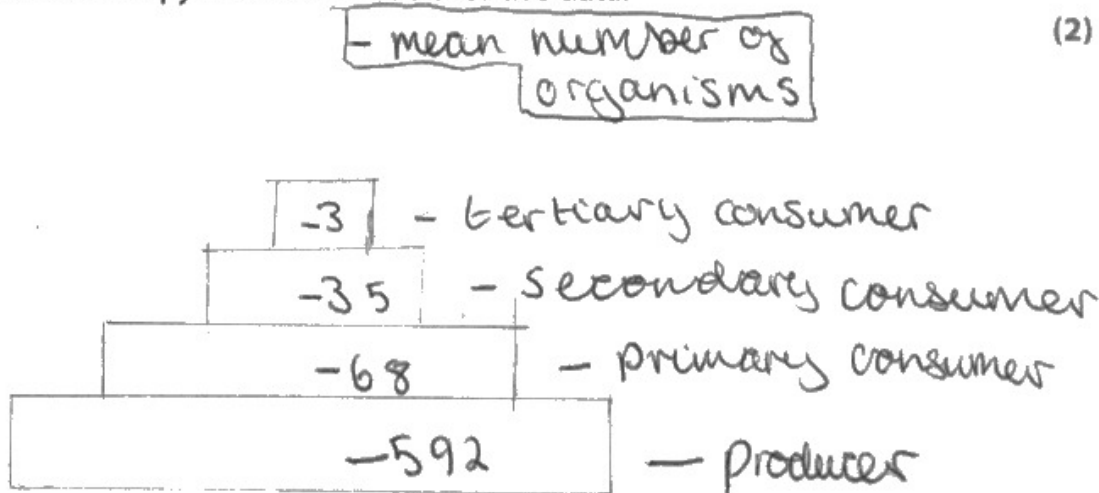 (2)
- mean number of
organisms
-3 - tertiary consumer
-35 - secondary consumer
-68 - primary consumer
-592 - producer